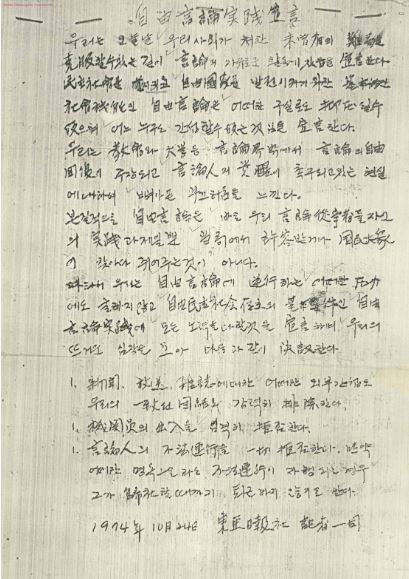 自由言論実踐宣言
우리는 오늘날 우리사회가 처한 未曾有의 難局을
克服할 수 있는 길이 言論의 자유로운 활동에 있음을 宣言한다.
民主社會를 유지하고 自由國家를 발전시키기 위한
社會機能인 自由言論은 어떠한 구실로도 抑压될 수
없으며 어느 누구도 간섭할 수 없는 것임을 宣言한다.
우리는 敎會와 大學 등 言論界 밖에서 言論의 自由
回復이 주장되고 言論人의 覚醒이 촉구되고 있는 현실
에 대하여 뼈아픈 부끄러움을 느낀다.
본질적으로 自由言論은 바로 우리 言論從事者들 자신
의 実踐과제일 뿐 당국에서 허용받거나 国民大衆
이 찾아다 쥐어주는 것이 아니다.
따라서 우리는 自由言論에 逆行하는 어떠한 压力
에도 굴하지 않고 自由民主社会 存立의 自由
言論実踐에 모든 노력을 다할 것을 宣言하며 우리의
뜨거운 심장을 모아 다음과 같이 決議한다.
1. 新聞, 放送, 雜誌에 대한 어떠한 외부간섭도
우리의 一致된 団結로 강력히 排除한다.
1. 機関員의 出入을 엄격히 拒否한다.
1. 言論人의 不法連行을 一切 拒否한다. 만약
어떠한 명목으로라도 不法連行이 자행되는 경우
그가 歸社할 때까지 퇴근하지 않기로 한다.
1974年 10月 24日 東亜日報社 記者一同